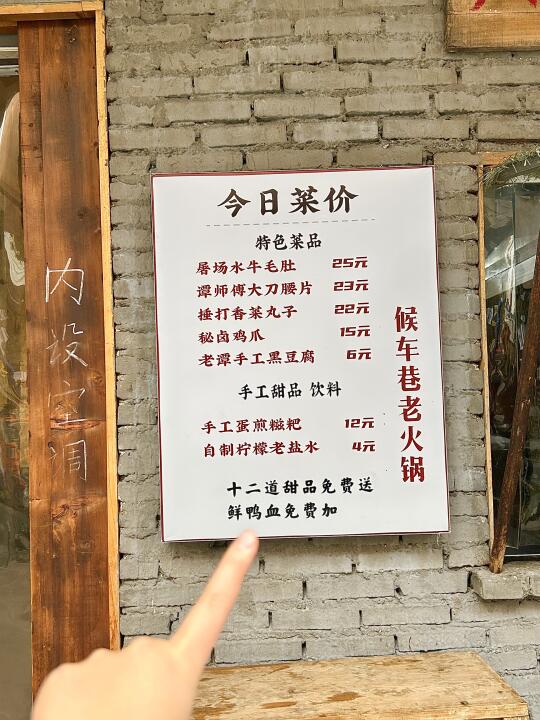 今日菜价
特色菜品
屠场水牛毛肚 25元
谭师傅大刀腰片 23元
捶打香菜丸子 22元
秘卤鸡爪 15元
老谭手工黑豆腐 6元
手工甜品 饮料
手工蛋煎糍粑 12元
自制柠檬老盐水 4元
十二道甜品免费送
鲜鸭血免费加
候车巷老火锅
内设空调